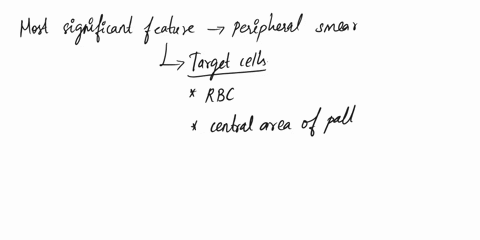 Most significant feature → peripheral smear
↳ Target cells
* RBC
* central area of pall